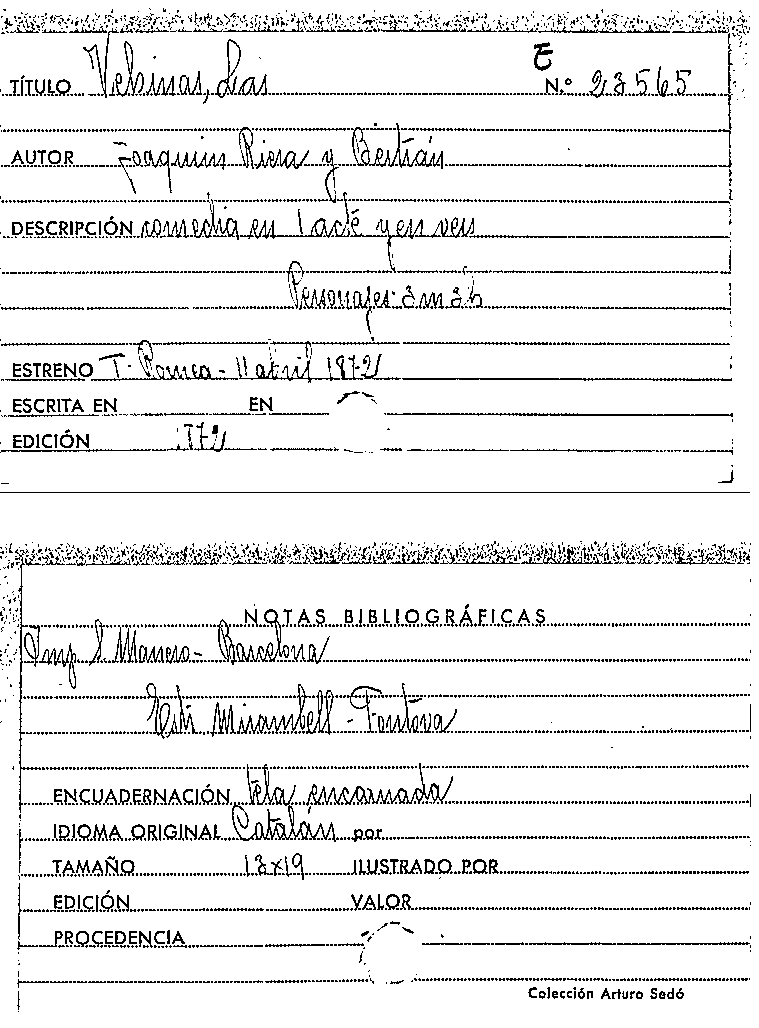 E
TÍTULO Vehinas, Las N.º 23565
AUTOR Joaquim Riera y Bertrán
DESCRIPCIÓN comedia en 1 acte y en vers
Personajes 3m 3h
ESTRENO T. Romea - 11 abril 1872
ESCRITA EN EN
EDICIÓN 1872
NOTAS BIBLIOGRÁFICAS
Imp S Manero - Barcelona
Mirambell - Fontova
ENCUADERNACIÓN tela encarnada
IDIOMA ORIGINAL Catalán por
TAMAÑO 13x19 ILUSTRADO POR
EDICIÓN VALOR
PROCEDENCIA
Colección Arturo Sedó